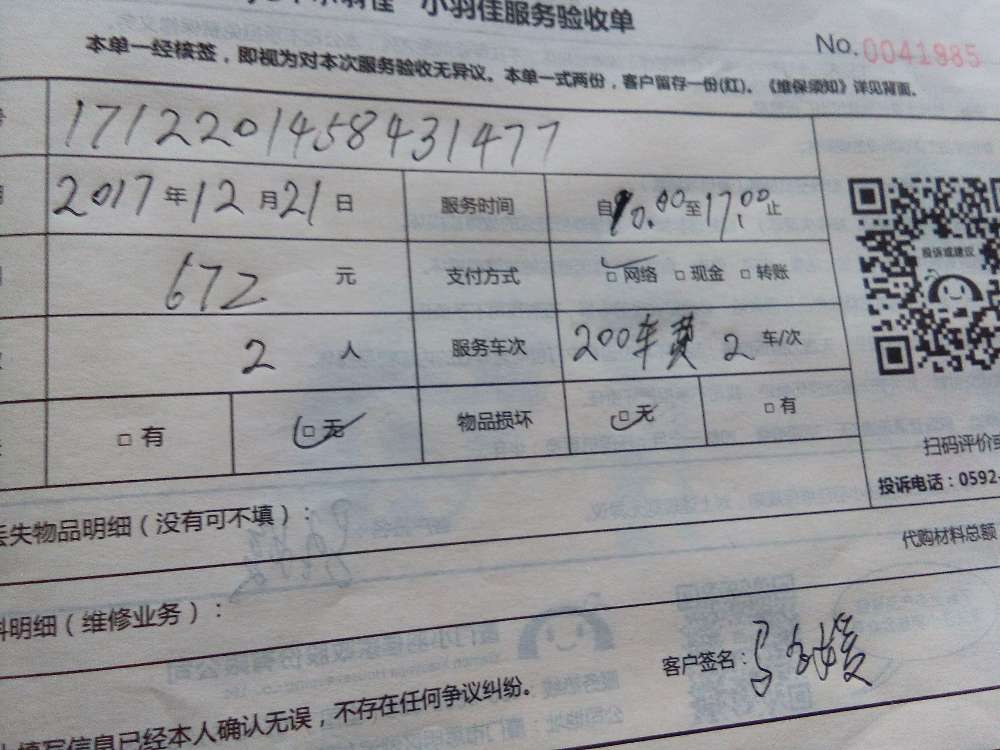 小羽佳服务验收单
No. 0041885
本单一经核签，即视为对本次服务验收无异议。本单一式两份，客户留存一份(红)。《维保须知》详见背面。
17122014584431477
2017年12月21日 服务时间 自10.00至17:00止
672 元 支付方式 □网络 □现金 □转账
2 人 服务车次 200车费 2 车/次
□有 □无 物品损坏 □无 □有
投诉或建议
扫码评价或
投诉电话：0592-
丢失物品明细（没有可不填）：
代购材料总额
料明细（维修业务）：
客户签名：
填写信息已经本人确认无误，不存在任何争议纠纷。